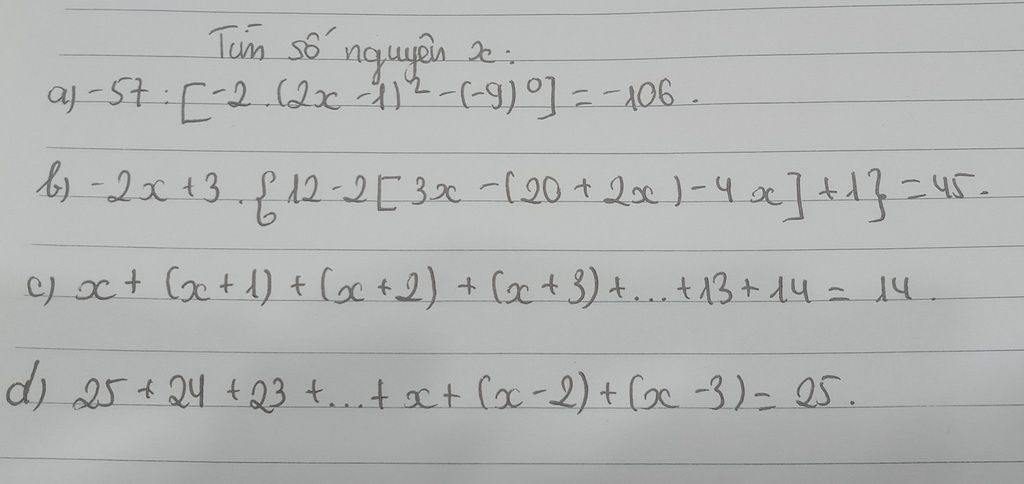 Tìm số nguyên x:
a) -57 : [-2.(2x -1)² -(-9)⁰] = -106.
b) -2x +3.{12 -2[3x -(20 + 2x) -4x] +1} = 45.
c) x + (x+1) + (x+2) + (x+3) +... +13 + 14 = 14.
d) 25 + 24 + 23 +...+ x + (x -2) + (x -3) = 25.